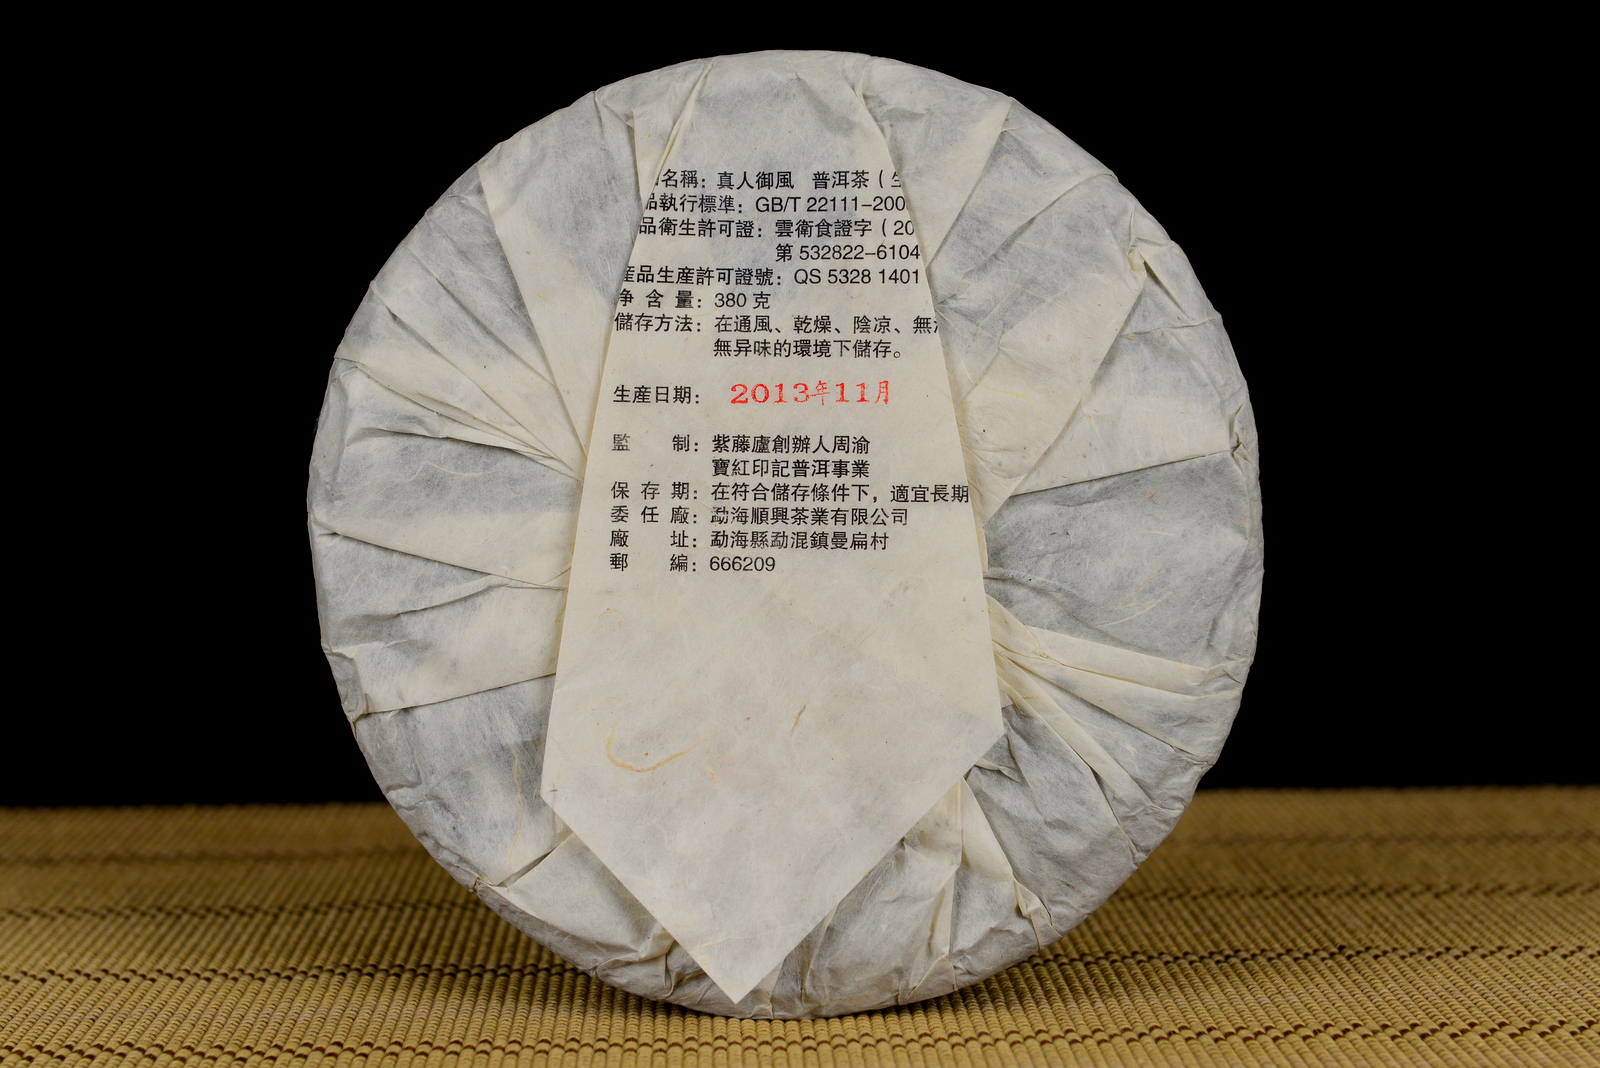 名稱：真人御風 普洱茶（生
品執行標準：GB/T 22111-200
品衛生許可證：雲衛食證字（20
第 532822-6104
産品生産許可證號：QS 5328 1401
净含量：380 克
儲存方法：在通風、乾燥、陰凉、無
無异味的環境下儲存。
生産日期：2013年11月
監 制：紫藤廬創辦人周渝
寶紅印記普洱事業
保存期：在符合儲存條件下，適宜長期
委任廠：勐海順興茶業有限公司
廠 址：勐海縣勐混鎮曼扁村
郵 編：666209